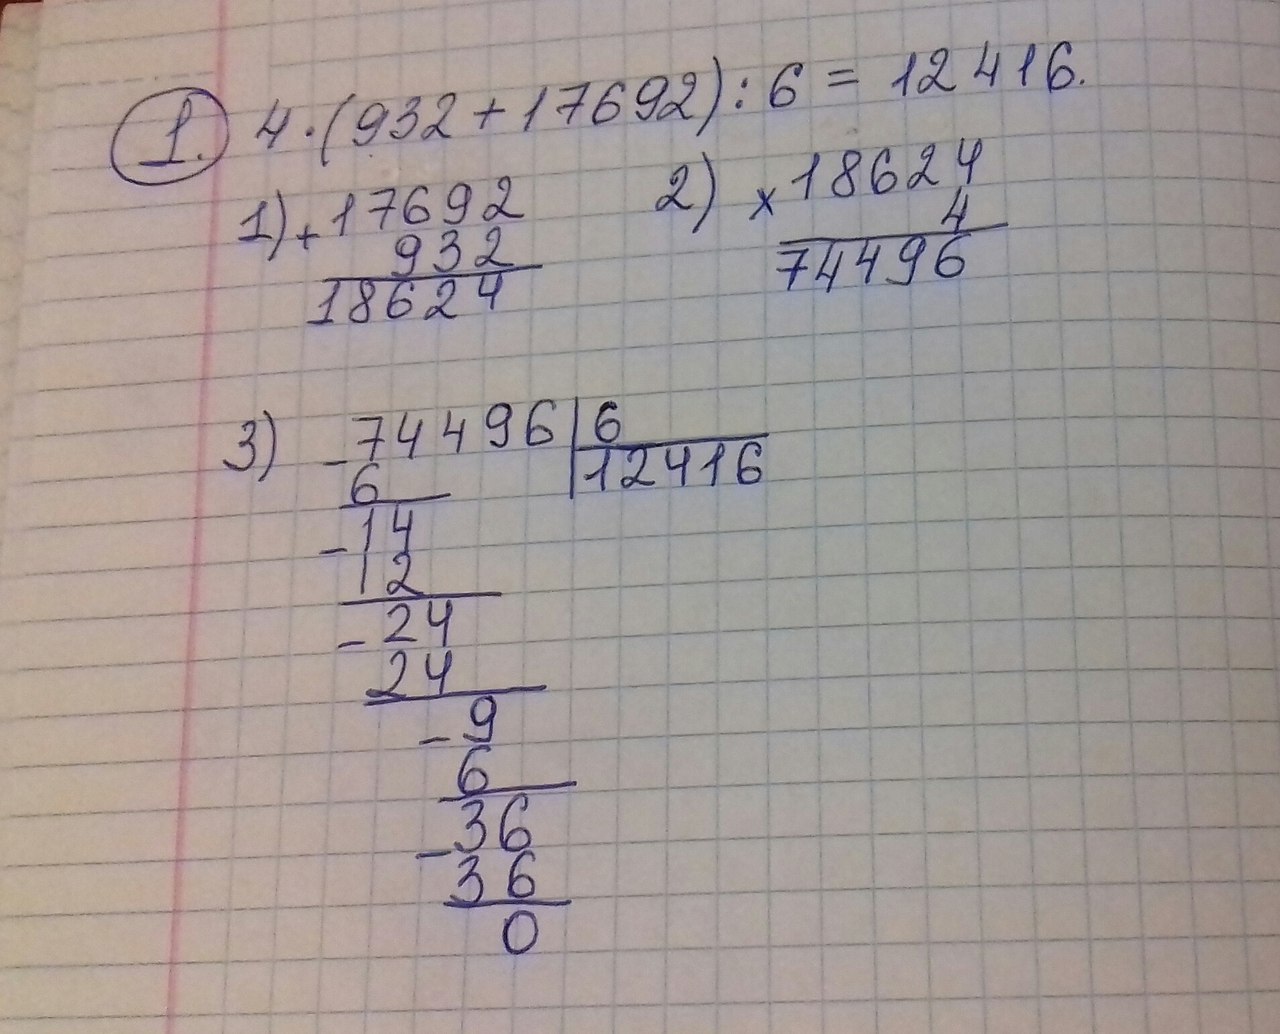 1. 4·(932+17692):6=12416.
1) + 17692
932
18624
2) × 18624
4
74496
3) - 74496 | 6
6 | 12416
- 14
12
- 24
24
- 9
6
- 36
36
0